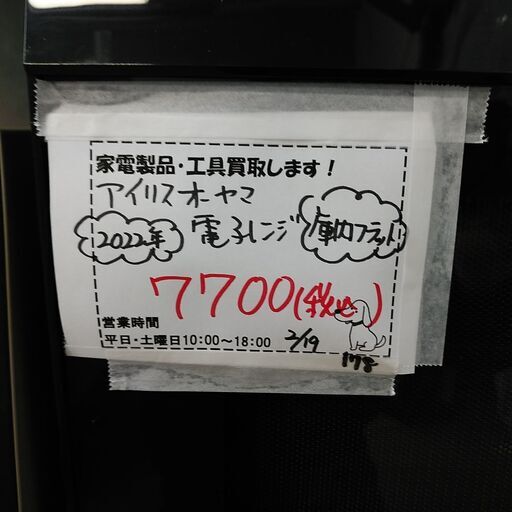 家電製品・工具買取します！
アイリスオーヤマ
2022年 電子レンジ 庫内フラット
7700(税込)
営業時間
平日・土曜日10:00～18:00 2/19
178